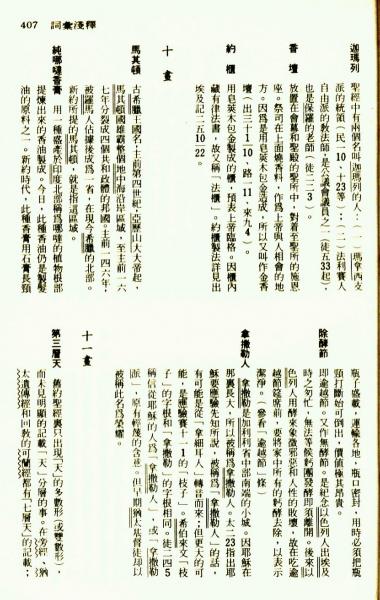 407 詞彙淺釋
迦瑪列 聖經中有兩個名叫迦瑪列的人：(一)瑪拿西支
派的統領（民一10，十23等）；(二)法利賽人
自由派的教法師，是公議會議員之一（徒五33起），
也是保羅的老師（徒二二3）。
香壇 放置在會幕和聖殿的聖所中，對着至聖所的施恩
座。祭司在上面燒香料，作爲上帝與人相會的地
方。因爲是用皂莢木包金造成，所以又叫作金香
壇（出三十1 10，路一11，來九4）。
約櫃 用皂莢木包金製成的櫃，預表上帝臨格。因櫃內
藏有律法書，故又稱「法櫃」。約櫃製法詳見出
埃及記二五10 22。
十畫
馬其頓 古希臘王國名，主前第四世紀，亞歷山大大帝起，
馬其頓國雄霸整個地中海沿岸區域，至主前一六
七年分裂成四個共和政體的邦國。主前一四六年，
被羅馬人佔據後成爲一省，在現今希臘的北部。
新約所提的馬其頓，就是指這個區域。
純哪噠香膏 用一種盛產於印度北部稱爲哪噠的植物根部
提煉出來的香油製成。今日，此種香膏仍是製髮
油的原料之一。新約時代，此種香膏用石膏長頸
瓶子盛載，運輸各地，瓶口密封，用時必須把瓶
頸打斷始可倒出，價值極其昂貴。
除酵節 即逾越節。又作無酵節。是紀念以色列人出埃及
時之匆忙，無法等候麵團發酵即須離開。後來以
色列人用酵來象徵邪惡和人性的敗壞，故在吃逾
越節筵席前，要將家中所有的麪酵去除，以表示
潔淨。（參看「逾越節」條）
拿撒勒人 拿撒勒是加利利省中部南端的小城。因耶穌在
那裏長大，所以被稱爲拿撒勒人。太二23指出耶
穌要應驗先知所說，被稱爲「拿撒勒人」的話，
有可能是從「拿細耳人」轉音而來；但更大的可
能，是應驗賽十一1的「枝子」。希伯來文「枝
子」的字根和「拿撒勒」的字根相同。徒二四5
稱信從耶穌的人爲「拿撒勒人」，或「拿撒勒
派」，原有輕蔑的含意。但早期猶太基督徒却以
被稱此名爲榮耀。
十一畫
第三層天 舊約聖經裏只出現「天」的多數形（或雙數形），
而未見明顯的記載「天」分層的事。在旁經、猶
太遺傳經和回教的可蘭經都有「七層天」的記載；